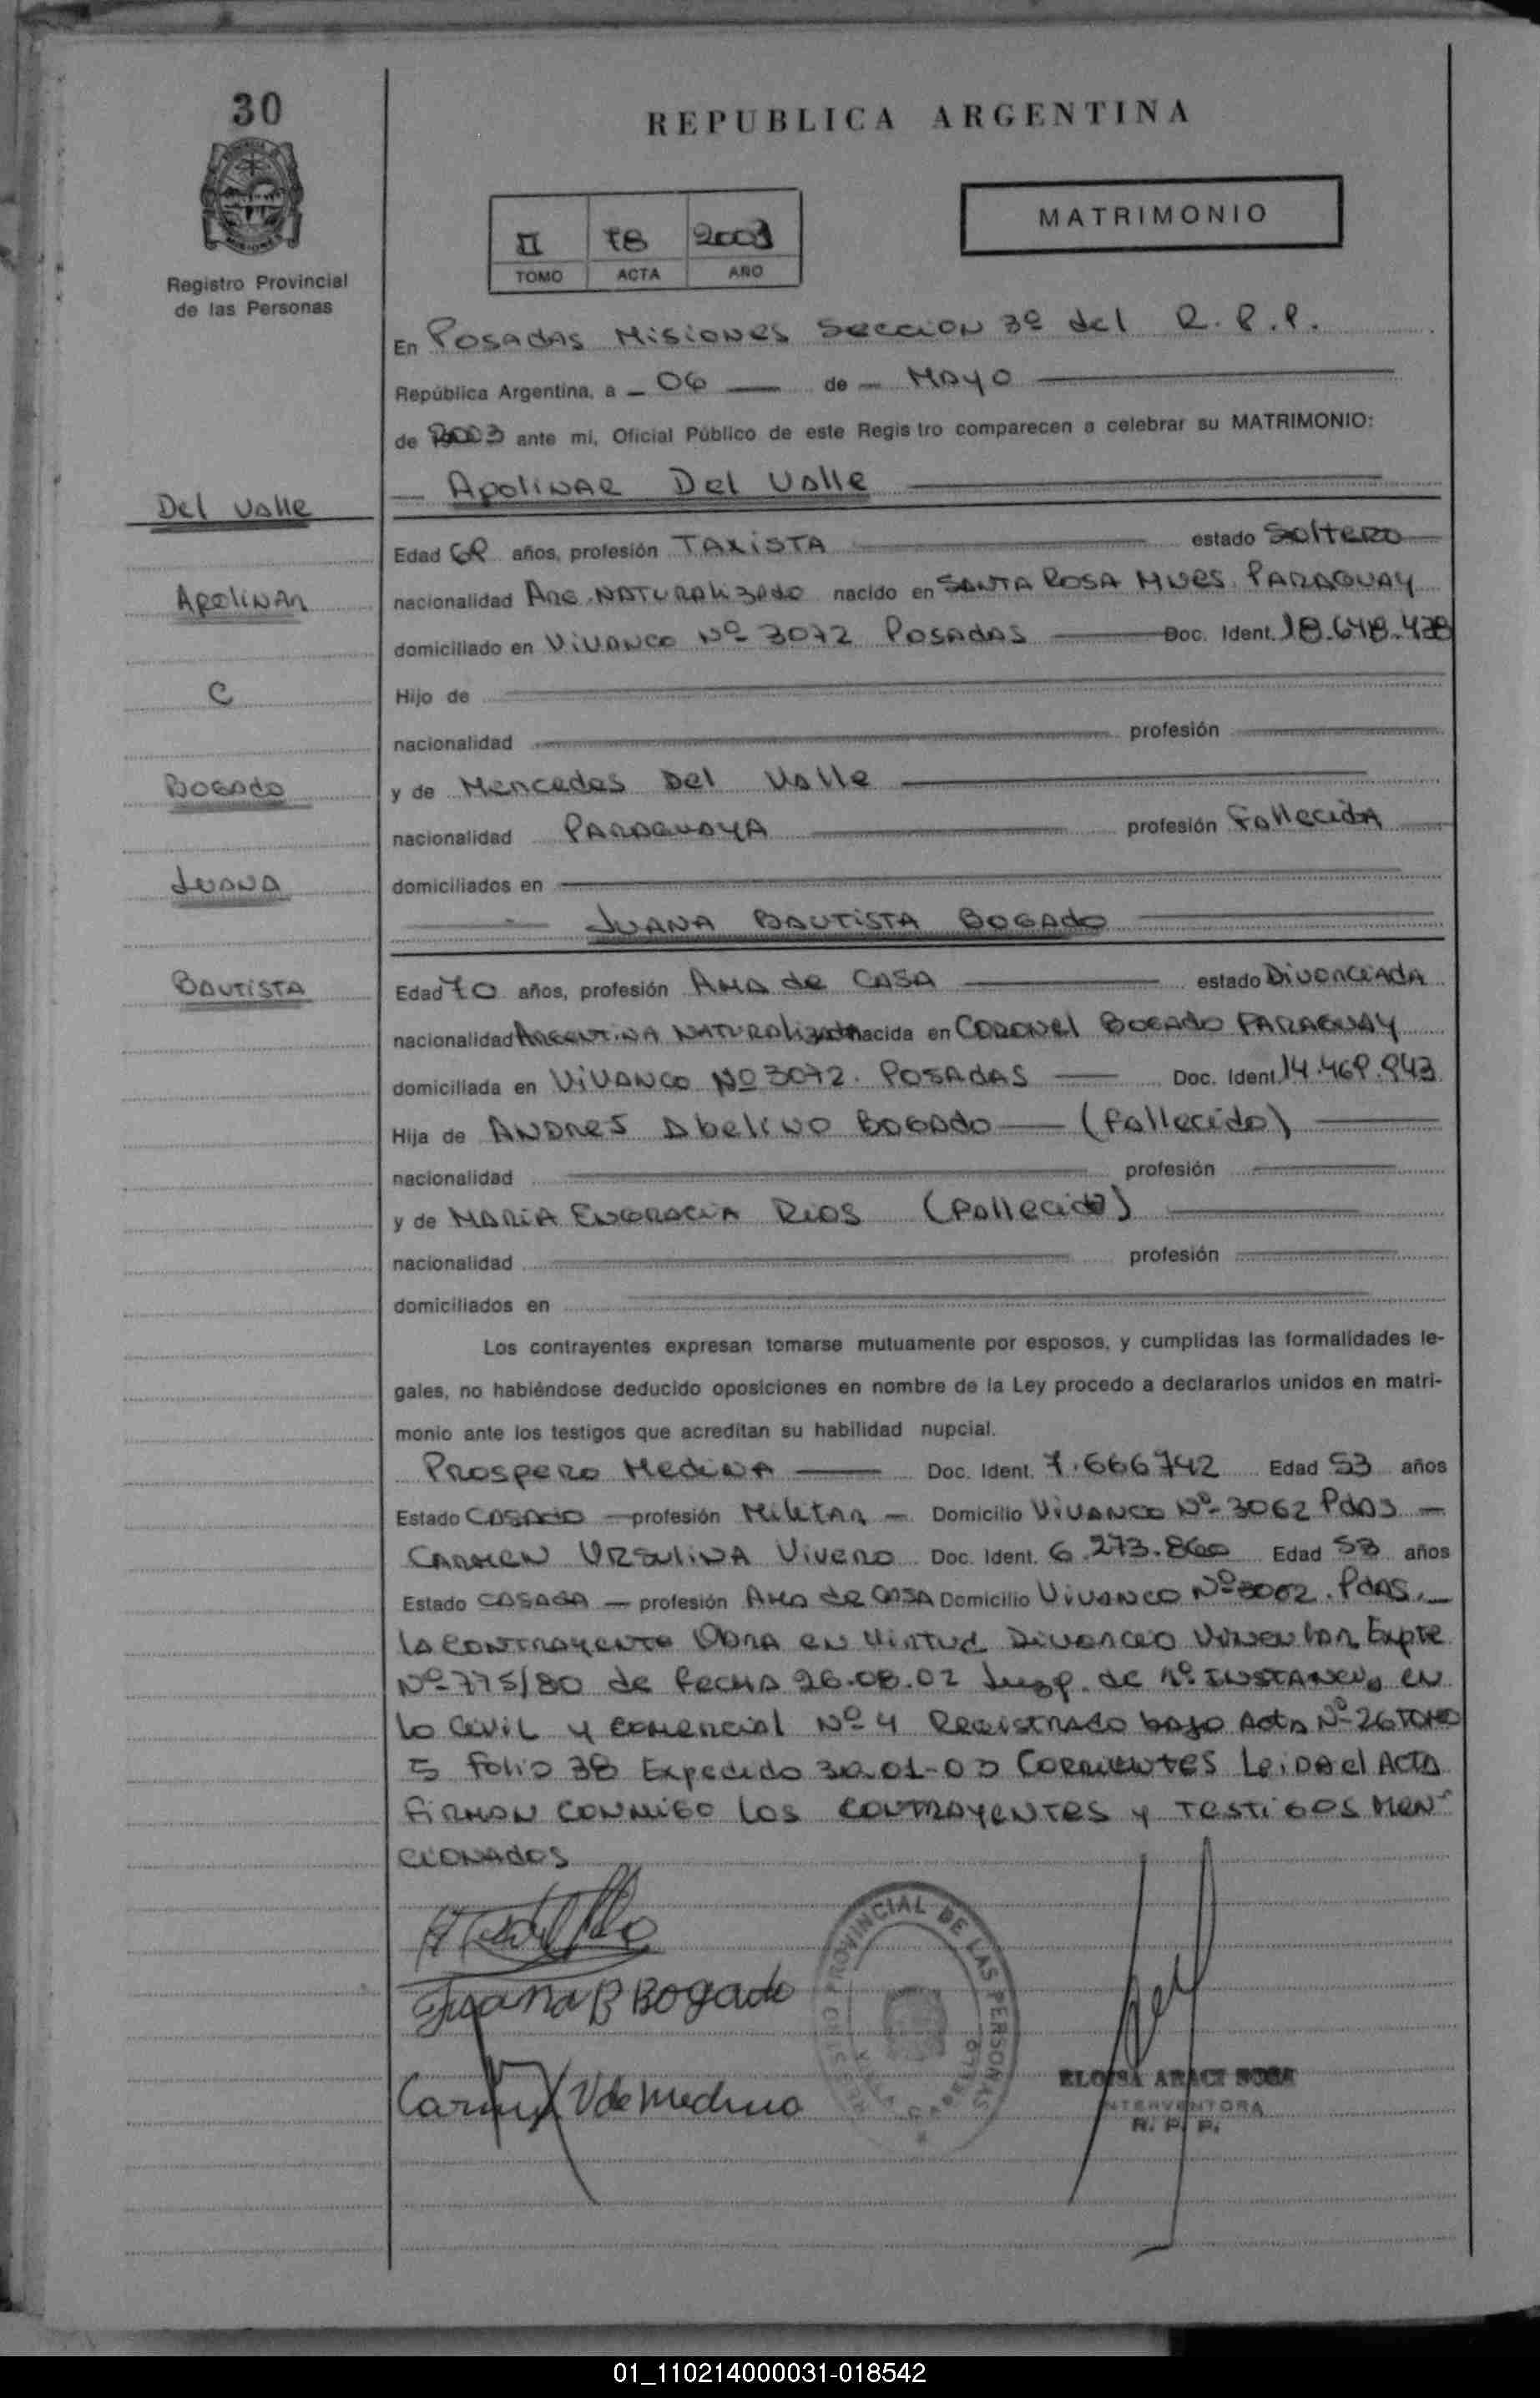 30
REPUBLICA ARGENTINA
MATRIMONIO
II 78 2003
TOMO ACTA AÑO
Registro Provincial
de las Personas
En Posadas Misiones Seccion 3º del R.P.P.
República Argentina, a - 06 — de — Mayo
de 2003 ante mi, Oficial Público de este Registro comparecen a celebrar su MATRIMONIO:
— Apolinar Del Valle
Del Valle
Apolinar
C
Bogado
Juana
Bautista
Edad años, profesión TAXISTA estado Soltero
nacionalidad Arg. Naturalizado nacido en SANTA ROSA Mnes. PARAGUAY
domiciliado en Vivanco Nº 3072 Posadas — Doc. Ident. 18.648.428
Hijo de
nacionalidad profesión
y de Mercedes Del Valle
nacionalidad PARAGUAYA profesión Fallecida
domiciliados en
JUANA BAUTISTA BOGADO
Edad 70 años, profesión Ama de CASA estado Divorciada
nacionalidad ARGENTINA NATURALizada nacida en CORONEL BOGADO PARAGUAY
domiciliada en Vivanco Nº 3072. POSADAS — Doc. Ident. 14.469.943
Hija de ANDRES Abelino BOGADO — (Fallecido)
nacionalidad profesión
y de MARIA ENGRACIA RIOS (Fallecida)
nacionalidad profesión
domiciliados en
Los contrayentes expresan tomarse mutuamente por esposos, y cumplidas las formalidades le-
gales, no habiéndose deducido oposiciones en nombre de la Ley procedo a declararlos unidos en matri-
monio ante los testigos que acreditan su habilidad nupcial.
PROSPERO MEDINA — Doc. Ident. 7.666742 Edad 53 años
Estado CASADO — profesión Militar — Domicilio Vivanco Nº 3062 Pdas —
CARMEN URSULINA Vivero Doc. Ident. 6.273.860 Edad 53 años
Estado CASADA — profesión Ama de CASA Domicilio Vivanco Nº 3062. Pdas. —
La contrayente Obra en virtud Divorcio Vincular Expte
Nº 775/80 de fecha 26.08.02 Juzg. de 1º INSTANCIA en
lo Civil y Comercial Nº 4 Registrado bajo Acta Nº 26 TOMO
5 Folio 38 Expedido 30.01-03 CORRIENTES Leida el ACTA
FIRMAN CONMIGO los CONTRAYENTES y TESTIGOS MEN-
CIONADOS
Juana B Bogado
Carmen V de Medina
REGISTRO PROVINCIAL DE LAS PERSONAS
ELOISA ARACI SOSA
INTERVENTORA
R. P. P.
01_110214000031-018542